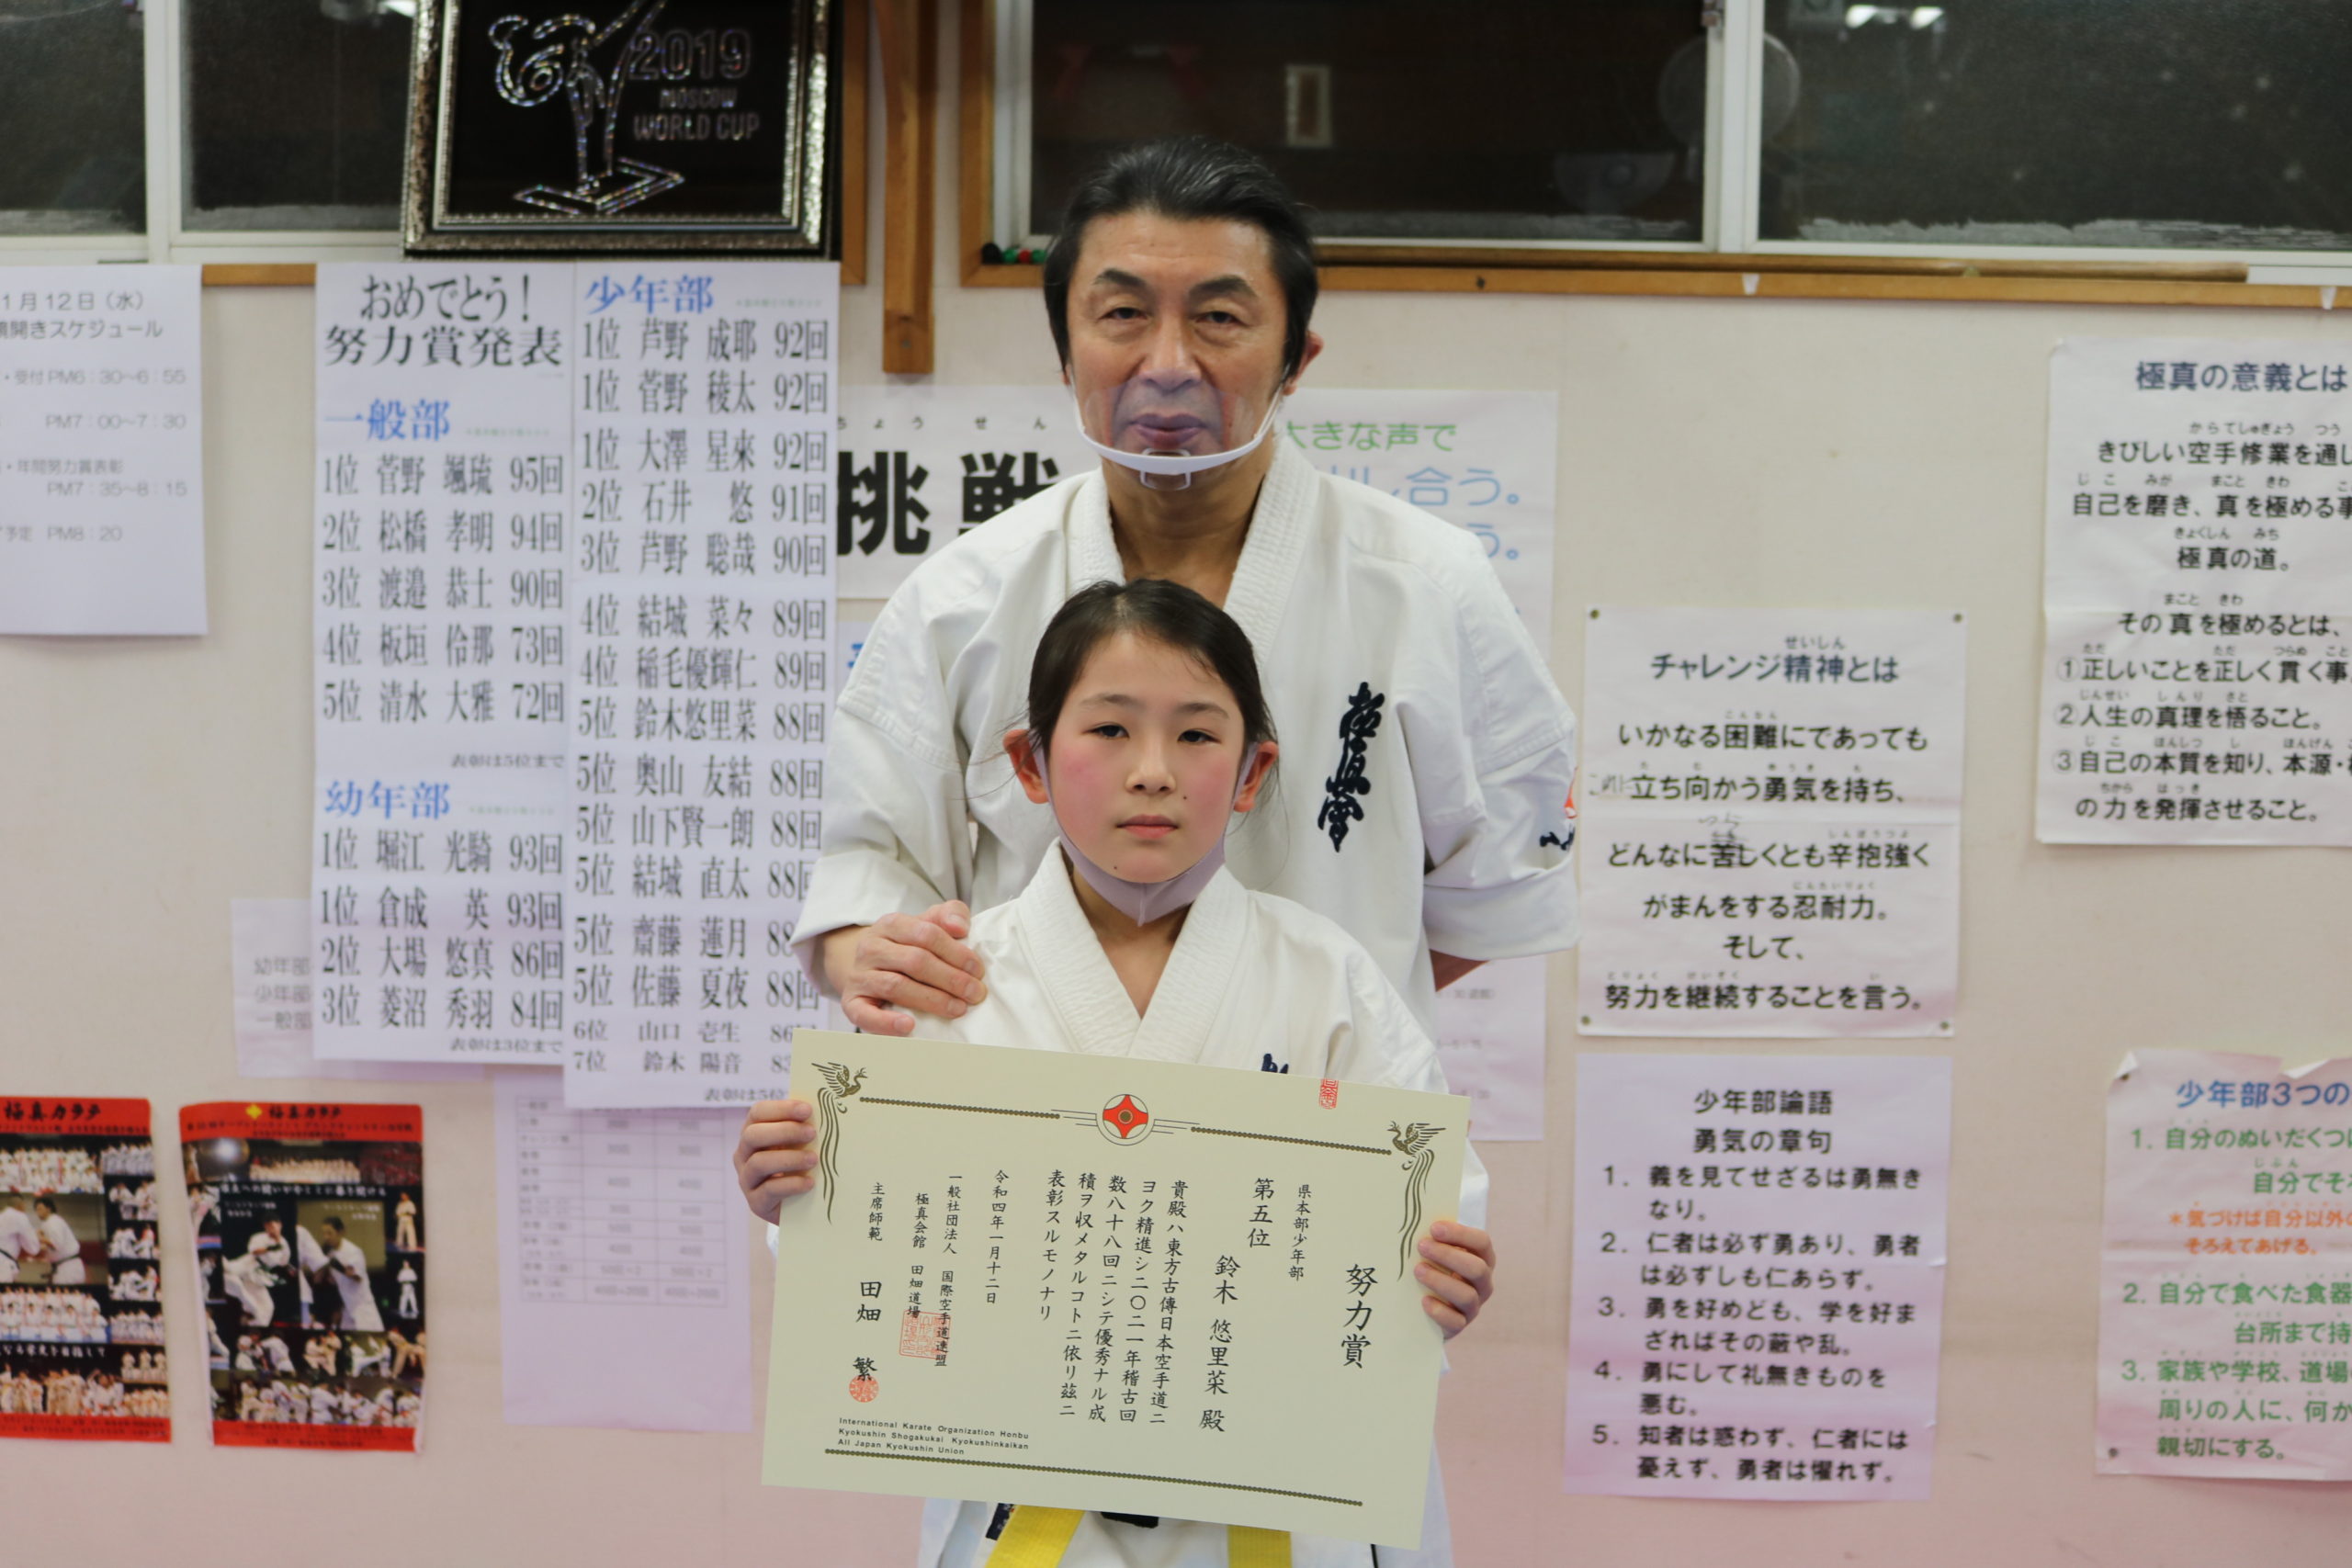 2019
MOSCOW
WORLD CUP
1月12日（水）
開きスケジュール
・受付 PM6：30～6：55
PM7：00～7：30
・年間努力賞表彰
PM7：35～8：15
予定 PM8：20
おめでとう！
努力賞発表
一般部
1位 菅野 颯琉 95回
2位 松橋 孝明 94回
3位 渡邉 恭士 90回
4位 板垣 伶那 73回
5位 清水 大雅 72回
表彰は5位まで
幼年部
1位 堀江 光騎 93回
1位 倉成 英 93回
2位 大場 悠真 86回
3位 菱沼 秀羽 84回
表彰は3位まで
少年部
1位 芦野 成耶 92回
1位 菅野 稜太 92回
1位 大澤 星來 92回
2位 石井 悠 91回
3位 芦野 聡哉 90回
4位 結城 菜々 89回
4位 稲毛優輝仁 89回
5位 鈴木悠里菜 88回
5位 奥山 友結 88回
5位 山下賢一朗 88回
5位 結城 直太 88回
5位 齋藤 蓮月 88
5位 佐藤 夏夜 88回
6位 山口 壱生 86
7位 鈴木 陽音 83
表彰は5位
ちょう せん
挑戦
大きな声で
し合う。
う。
極真會
幼年部
少年部
一般部
極真カラテ
極真カラテ
努力賞
県本部少年部
第五位
鈴木 悠里菜 殿
貴殿ハ東方古傳日本空手道ニ
ヨク精進シ二〇二一年稽古回
数八十八回ニシテ優秀ナル成
積ヲ収メタルコトニ依リ茲ニ
表彰スルモノナリ
令和四年一月十二日
一般社団法人 国際空手道連盟
極真会館 田畑道場
主席師範 田畑 繁
International Karate Organization Honbu
Kyokushin Shogakukai Kyokushinkaikan
All Japan Kyokushin Union
せいしん
チャレンジ精神とは
こんなん
いかなる困難にであっても
た む ゆうき も
立ち向かう勇気を持ち、
しんぼうつよ
どんなに苦しくとも辛抱強く
にんたいりょく
がまんをする忍耐力。
そして、
どりょく けいぞく い
努力を継続することを言う。
少年部論語
勇気の章句
1．義を見てせざるは勇無き
なり。
2．仁者は必ず勇あり、勇者
は必ずしも仁あらず。
3．勇を好めども、学を好ま
ざればその蔽や乱。
4．勇にして礼無きものを
悪む。
5．知者は惑わず、仁者には
憂えず、勇者は懼れず。
極真の意義とは
からてしゅぎょう つう
きびしい空手修業を通じ
じこ みが まこと きわ
自己を磨き、真を極める事
きょくしん みち
極真の道。
まこと きわ
その真を極めるとは、
ただ ただ つらぬ こと
①正しいことを正しく貫く事
じんせい しんり さと
②人生の真理を悟ること。
じこ ほんしつ し ほんげん
③自己の本質を知り、本源・
ちから はっき
の力を発揮させること。
少年部3つの
1．自分のぬいだくつ
じぶん
自分でそ
＊気づけば自分以外の
そろえてあげる。
2．自分で食べた食器
台所まで持
3．家族や学校、道場
周りの人に、何か
親切にする。